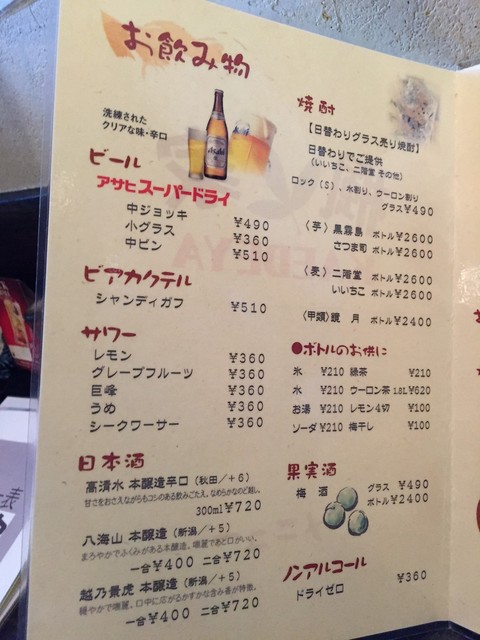 お飲み物
洗練された
クリアな味・辛口
Asahi
ビール
アサヒスーパードライ
中ジョッキ ¥490
小グラス ¥360
中ビン ¥510
ビアカクテル
シャンディガフ ¥510
サワー
レモン ¥360
グレープフルーツ ¥360
巨峰 ¥360
うめ ¥360
シークワーサー ¥360
日本酒
高清水 本醸造辛口（秋田／+6）
甘さをおさえながらもコシのある飲みごたえ。なめらかなのど越し。
300ml¥720
八海山 本醸造（新潟／+5）
まろやかでふくみがある本醸造。端麗であと口がいい。
一合¥400 二合¥720
越乃景虎 本醸造（新潟／+5）
穏やかで端麗。口中に広がるかすかな含み香が特徴。
一合¥400 二合¥720
焼酎
【日替わりグラス売り焼酎】
日替わりでご提供
（いいちこ、二階堂 その他）
ロック（S）、水割り、ウーロン割り
グラス¥490
〈芋〉黒霧島 ボトル¥2600
さつま司 ボトル¥2600
〈麦〉二階堂 ボトル¥2600
いいちこ ボトル¥2600
〈甲類〉鏡 月 ボトル¥2400
●ボトルのお供に
氷 ¥210 緑茶 ¥210
水 ¥210 ウーロン茶 1.8L ¥620
お湯 ¥210 レモン4切 ¥100
ソーダ ¥210 梅干し ¥100
果実酒
梅 酒 グラス ¥490
ボトル¥2400
ノンアルコール
ドライゼロ ¥360